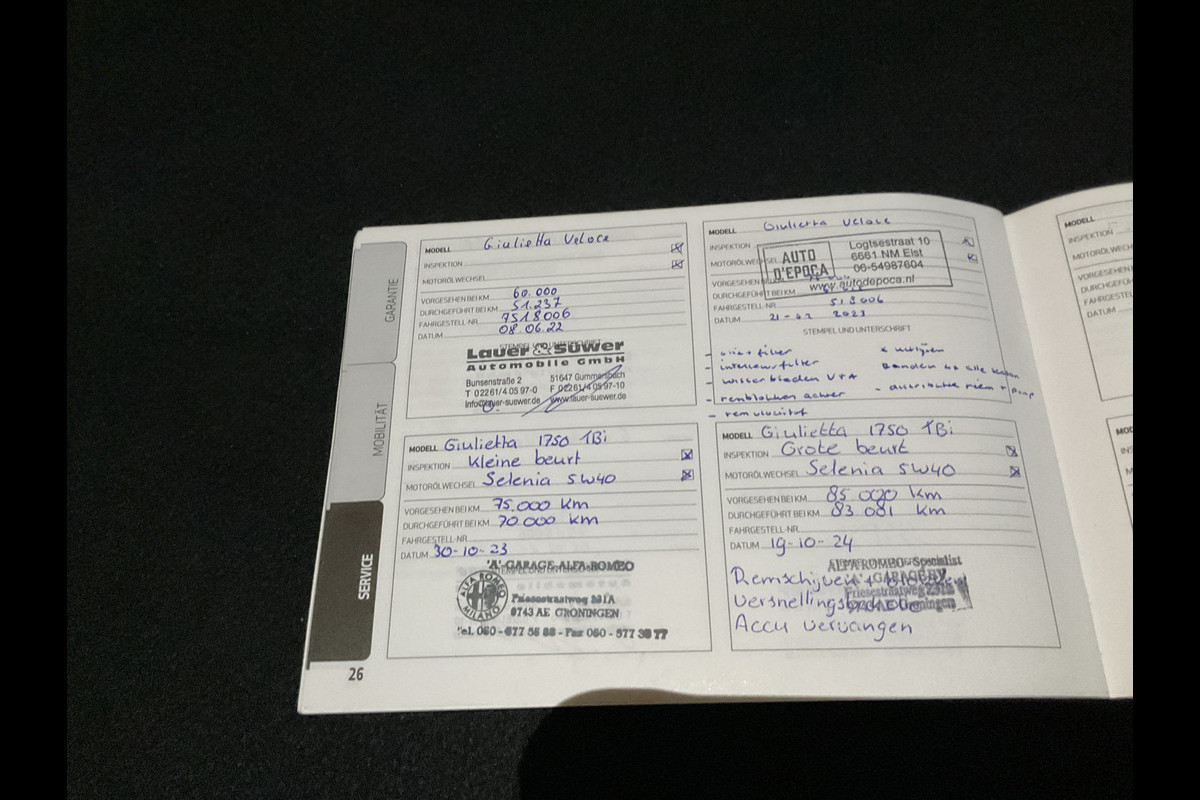 GARANTIE
MOBILITÄT
SERVICE
26
MODELL Giulietta Veloce
INSPEKTION
MOTORÖLWECHSEL
VORGESEHEN BEI KM 60.000
DURCHGEFÜHRT BEI KM 51.237
FAHRGESTELL-NR. 7518006
DATUM 08.06.22
STEMPEL UND UNTERSCHRIFT
Lauer & Süwer
Automobile GmbH
Bunsenstraße 2 51647 Gummersbach
T 02261/4 05 97-0 F 02261/4 05 97-10
info@lauer-suewer.de www.lauer-suewer.de
MODELL Giulietta Veloce
INSPEKTION
MOTORÖLWECHSEL
VORGESEHEN BEI KM
DURCHGEFÜHRT BEI KM
FAHRGESTELL-NR. 518006
DATUM 21-02 2023
AUTO
D'EPOCA
Logtsestraat 10
6661 NM Elst
06-54987604
www.autodepoca.nl
STEMPEL UND UNTERSCHRIFT
- olie + filter
- interieurfilter
- wisserbladen V+A
- remblokken achter
- remvloeistof
Banden 4x alle
- distributie riem + pomp
MODELL Giulietta 1750 TBi
INSPEKTION Kleine beurt
MOTORÖLWECHSEL Selenia 5W40
VORGESEHEN BEI KM 75.000 km
DURCHGEFÜHRT BEI KM 70.000 km
FAHRGESTELL-NR.
DATUM 30-10-23
STEMPEL UND UNTERSCHRIFT
'A'-GARAGE ALFA-ROMEO
ALFA ROMEO
MILANO
Friesestraatweg 231A
9743 AE GRONINGEN
Tel. 050 - 577 56 88 - Fax 050 - 577 38 77
MODELL Giulietta 1750 TBi
INSPEKTION Grote beurt
MOTORÖLWECHSEL Selenia 5W40
VORGESEHEN BEI KM 85 000 km
DURCHGEFÜHRT BEI KM 83 081 km
FAHRGESTELL-NR.
DATUM 19-10-24
ALFA ROMEO Specialist
'A' GARAGE BV
Friesestraatweg 231a
Groningen
Remschijven + blokken
Versnellingsbakolie
Accu vervangen
MODELL
INSPEKTION
MOTORÖLWECHS
VORGESEHEN
DURCHGEFÜHR
FAHRGESTELL-
DATUM